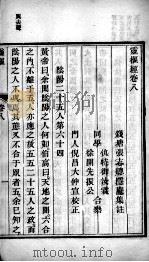 靈樞經卷八
錢塘張志聰隱庵集註
同學
仇時御汝霖合纂
徐開先振公
門人倪昌大仲宣校正
陰陽二十五人第六十四
黃帝曰余聞陰陽之人何如伯高曰天地之間六合
之內不離于五人亦應之故五五二十五人之政而
陰陽之人不與焉其態又不合于衆者五余已知之